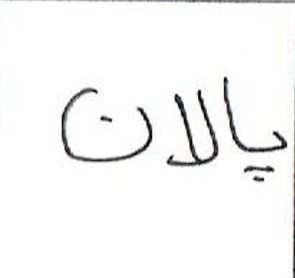 يالان